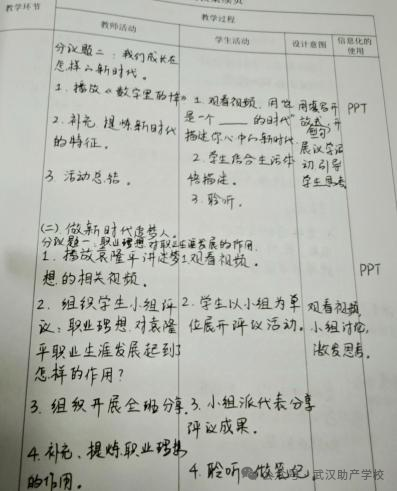 教学环节
教学过程
教师活动
学生活动
设计意图
信息化的
使用
分议题二：我们成长在
怎样的新时代。
1. 播放《数字里的
1. 观看视频，用“这
是一个____的时代”
描述你心中的新时代
用填空开
放式
开
展议学活
动引导
学生思考
PPT
2. 补充 提炼新时代
的特征。
2. 学生结合生活体
悟描述。
3 活动总结。
3. 聆听。
(二). 做新时代追梦人。
分议题一：职业理想对职业生涯发展的作用.
1. 播放袁隆平讲述梦
想的相关视频。
1. 观看视频。
PPT
2. 组织学生小组评
议：职业理想对袁隆
平职业生涯发展起到了
怎样的作用？
2. 学生以小组为单
位展开评议活动。
观看视频
小组讨论，
激发思考。
3. 组织开展全班分享.
3. 小组派代表分享
评议成果。
4. 补充、提炼职业理想
的作用。
4. 聆听 做笔记。
武汉助产学校